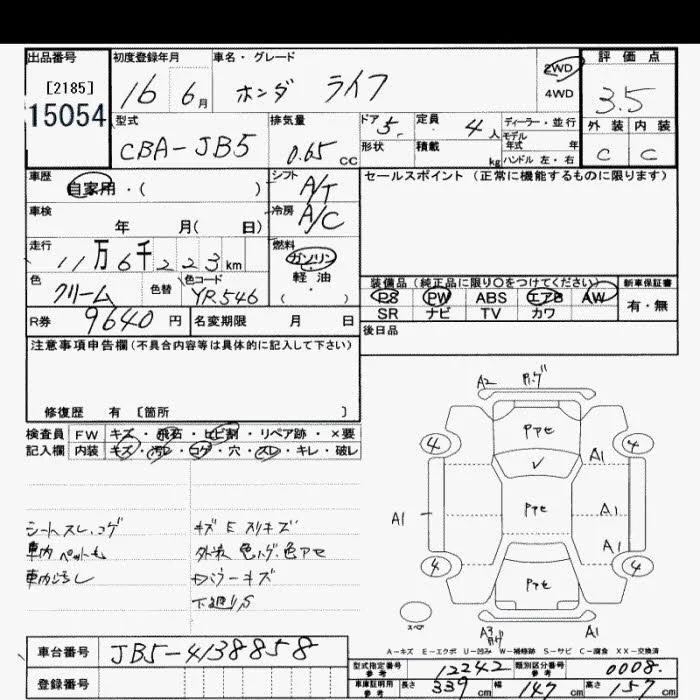 出品番号
[2185]
15054
初度登録年月
16 6月
車名・グレード
ホンダ ライフ
2WD
4WD
評価点
3.5
外装 内装
C C
型式
CBA-JB5
排気量
0.65 CC
ドア 5
形状
定員 4人
積載 kg
ディーラー・並行
モデル
年式 年
ハンドル 左・右
車歴
自家用・( )
シフト
A/T
車検
年 月( 日)
冷房
A/C
走行
11万6千223km
燃料
ガソリン
軽・油
( )
色
クリーム
色替
色コード
YR546
R券 9640円
名変期限 月 日
セールスポイント(正常に機能するものに限ります)
装備品(純正品に限り〇をつけてください)
PS PW ABS エアB AW
SR ナビ TV カワ
新車保証書
有・無
後日品
注意事項申告欄(不具合内容等は具体的に記入して下さい)
修復歴 有 〔箇所 〕
検査員 FW キズ・飛石・ヒビ割・リペア跡・×要
記入欄 内装 キズ・汚レ・コゲ・穴・スレ・キレ・破レ
シートスレ、コゲ
車内ペット毛
車内汚し
キズE スリキズ
外装 色ハゲ、色アセ
ミラーキズ
下廻りS
A2 ハゲ
アセ
4 4
A1
A1
アセ
A1
A1
4 4
アセ
スペア
A3
A1
A-キズ E-エクボ U-凹み W-補修跡 S-サビ C-腐食 XX-交換済
車台番号 JB5-4138858
登録番号
型式指定番号
参考 12242
類別区分番号
参考 0008
車庫証明用
参考 長さ 339cm 幅 147cm 高さ 157cm